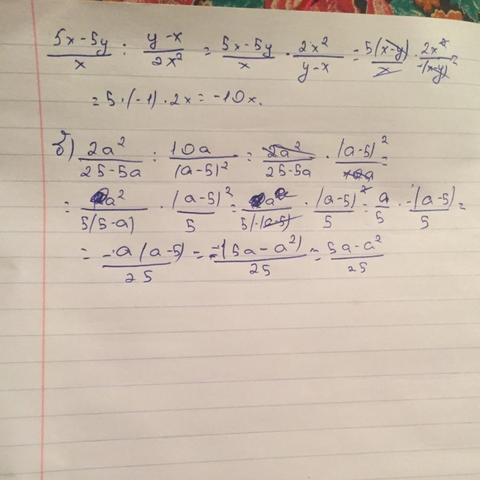 (5x-5y)/x : (y-x)/(2x²) = (5x-5y)/x · (2x²)/(y-x) = 5(x-y)/x · 2x²/-(x-y) =
= 5·(-1)·2x = -10x.
б) 2a²/(25-5a) : 10a/(a-5)² = 2a²/(25-5a) · (a-5)²/10a =
= a²/5(5-a) · (a-5)²/5 = a²/5(-(a-5)) · (a-5)²/5 = a/5 · -(a-5)/5 =
= -a(a-5)/25 = -(5a-a²)/25 = (5a-a²)/25